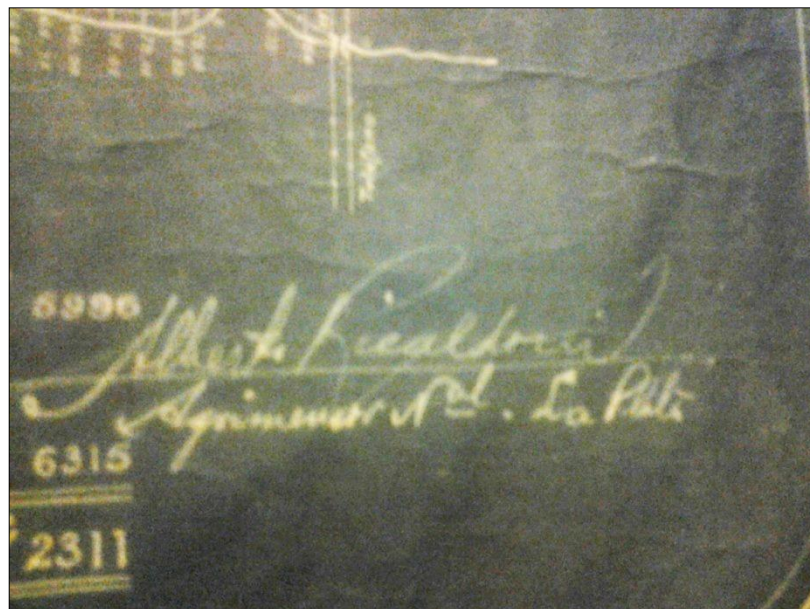 6996
Alberto Ricaldoni
Agrimensor Nal. La Plata
6315
2311